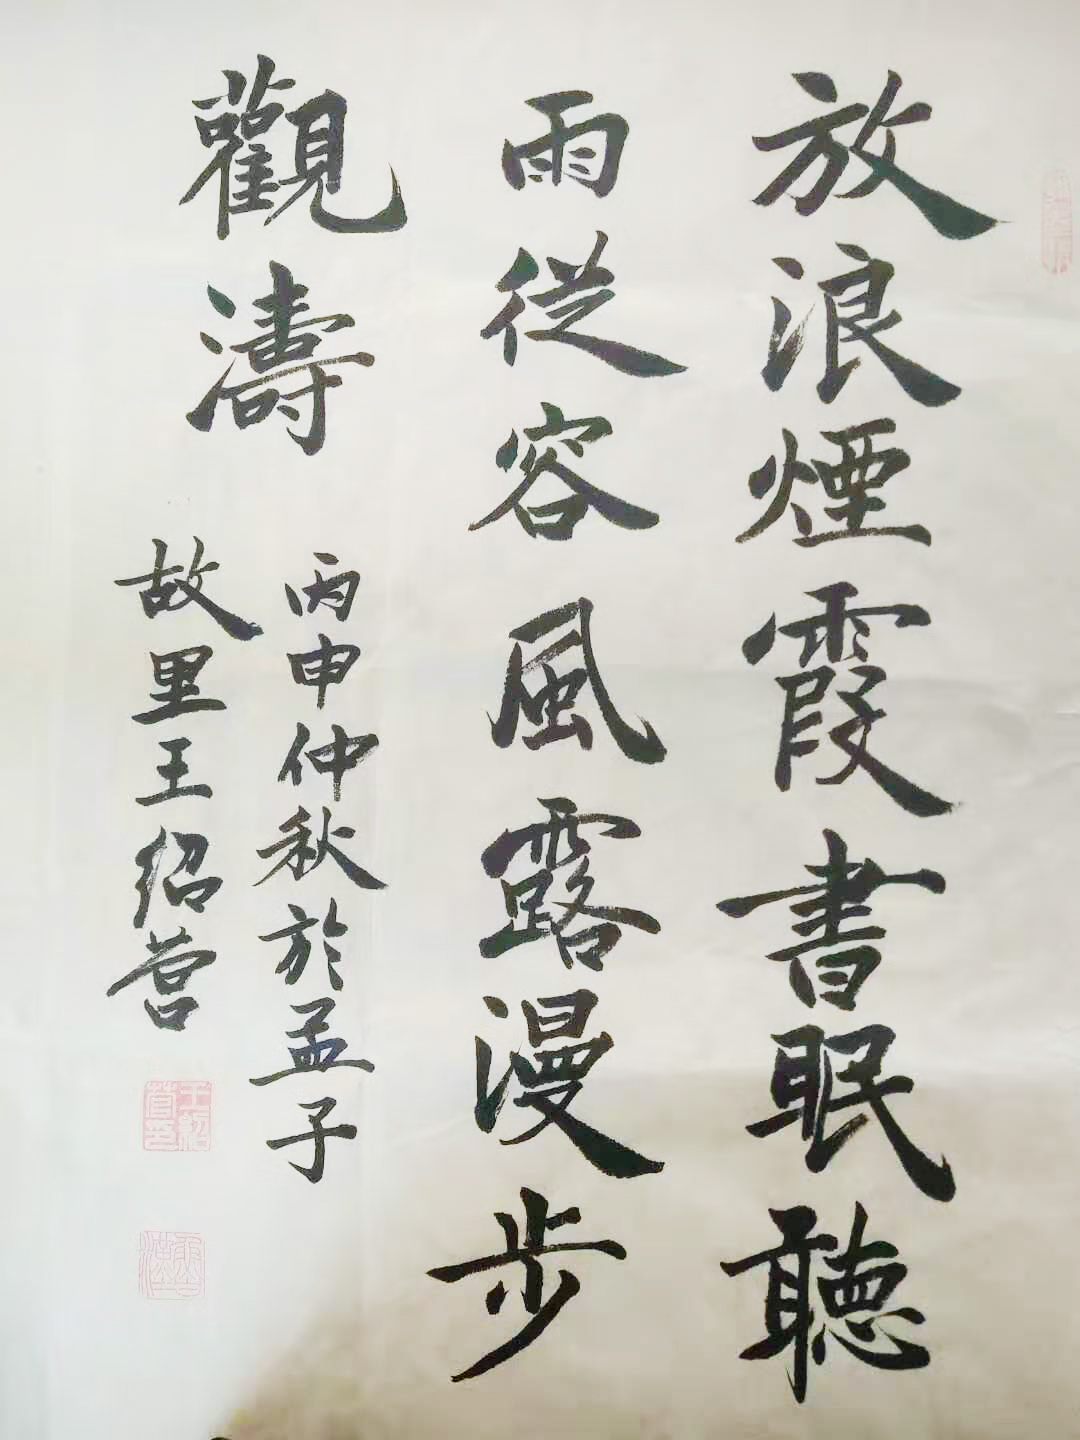 放浪煙霞書眠聽
雨從容風露漫步
觀濤
丙申仲秋於孟子
故里王紹营